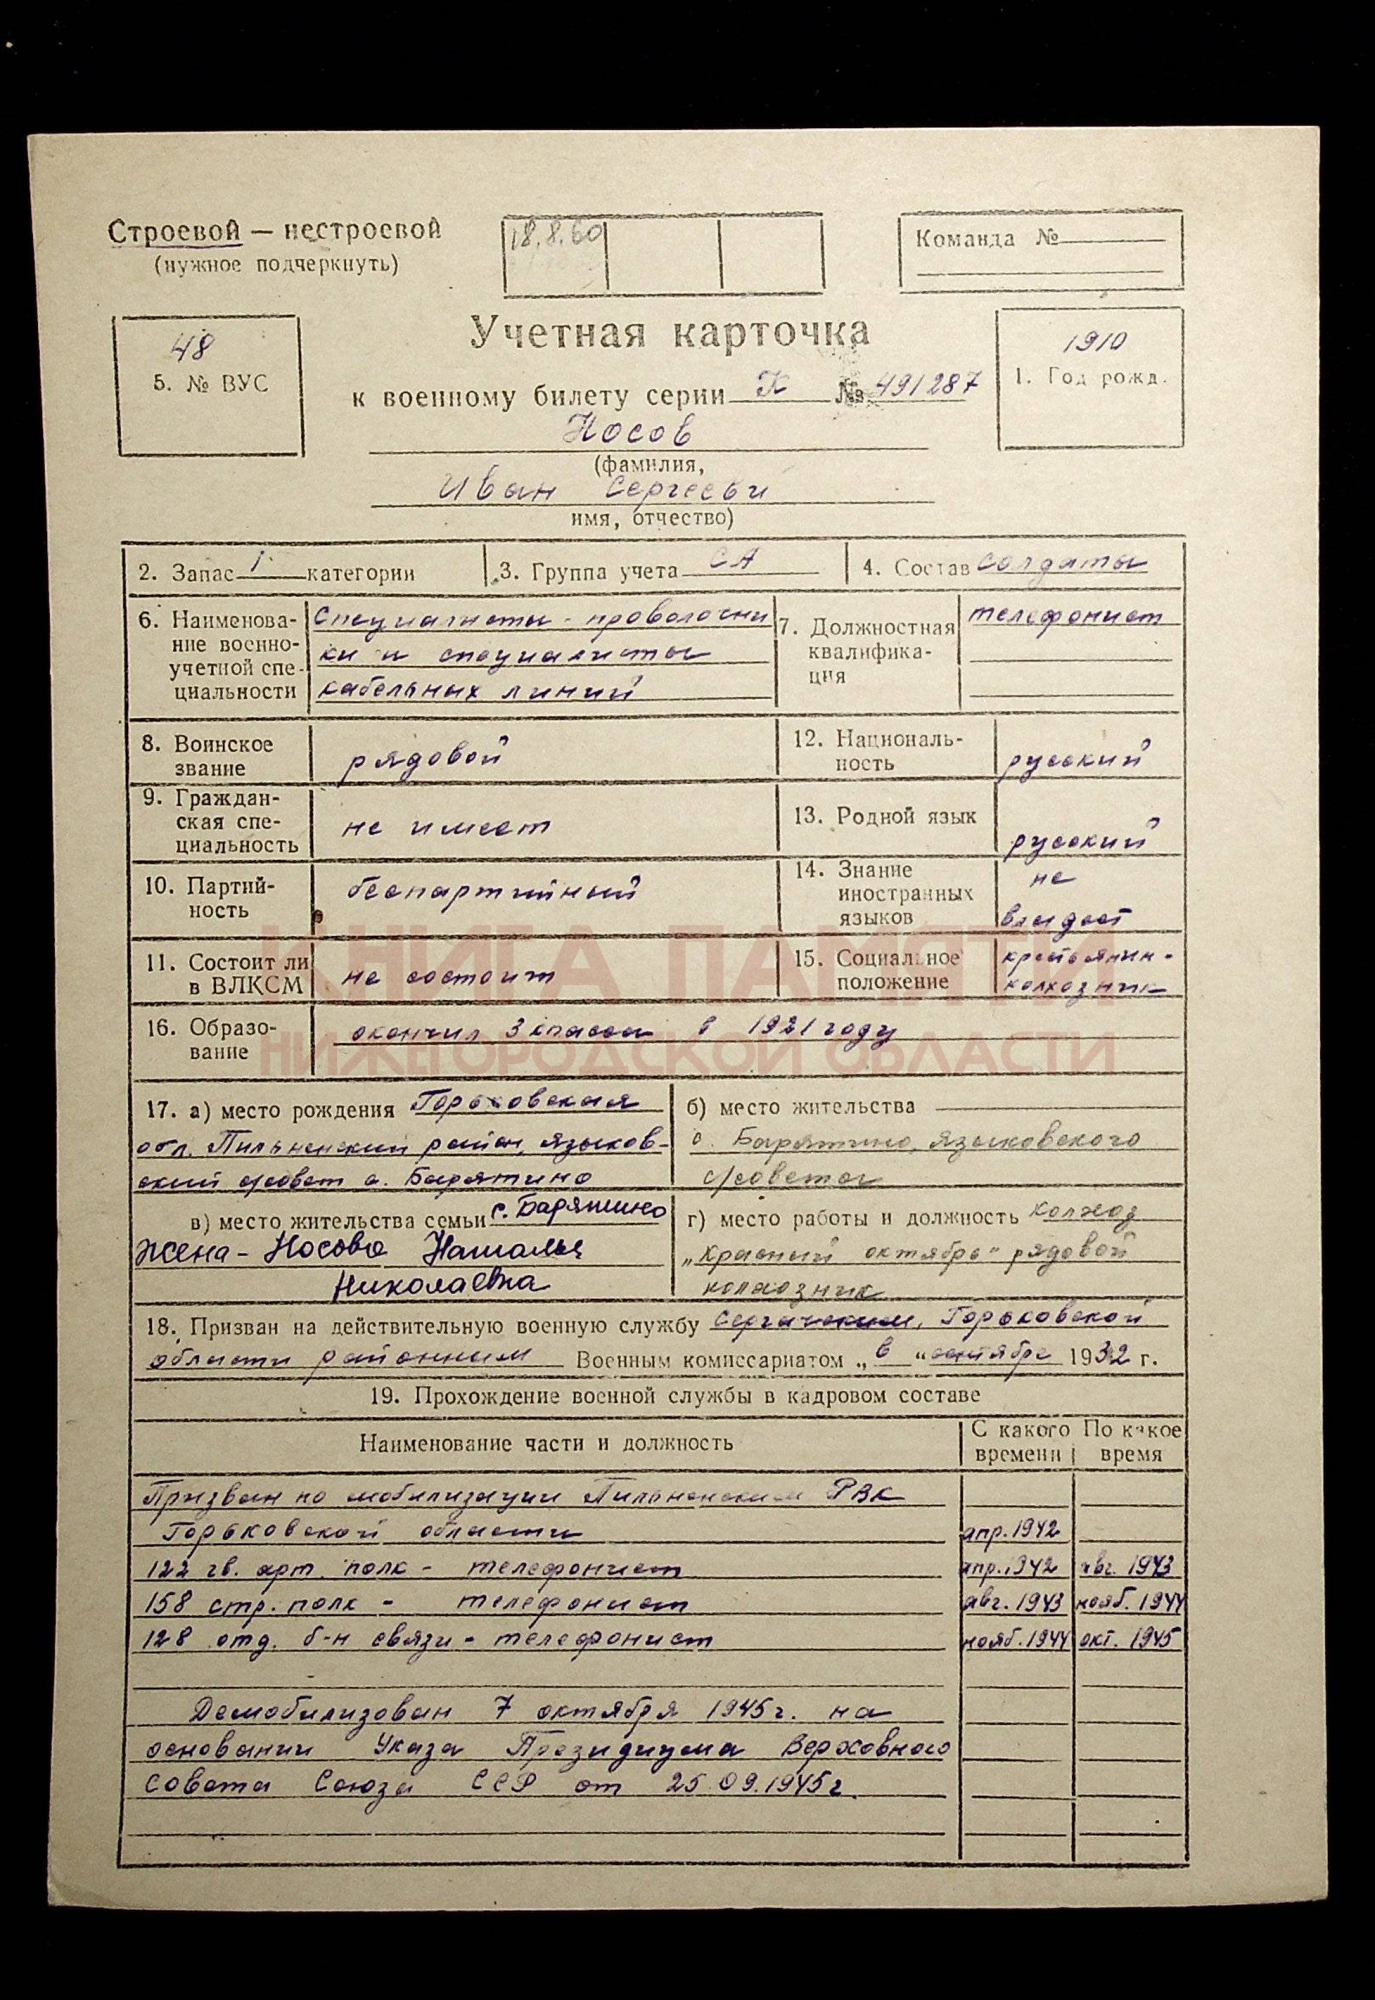 Строевой — нестроевой
(нужное подчеркнуть)
18.8.60
Команда №
48
5. № ВУС
Учетная карточка
к военному билету серии К № 491287
1910
1. Год рожд.
Носов
(фамилия,
Иван Сергееви
имя, отчество)
2. Запас 1 категории
3. Группа учета СА
4. Состав солдаты
6. Наименова-
ние военно-
учетной спе-
циальности
Специалисты - проволочни
ки и специалисты
кабельных линий
7. Должностная
квалифика-
ция
телефонист
8. Воинское
звание
рядовой
12. Националь-
ность
русский
9. Граждан-
ская спе-
циальность
не имеет
13. Родной язык
русский
10. Партий-
ность
беспартийный
14. Знание
иностранных
языков
не
владеет
11. Состоит ли
в ВЛКСМ
не состоит
15. Социальное
положение
крестьянин-
колхозник
КНИГА ПАМЯТИ
НИЖЕГОРОДСКОЙ ОБЛАСТИ
16. Образо-
вание
окончил 3 класса в 1921 году
17. а) место рождения Горьковская
обл. Пильненский район, языков-
ский с/совет с. Барятино
б) место жительства
с. Барятино, Языковского
с/совета
в) место жительства семьи с. Барятино
Жена - Носова Наталья
Николаевна
г) место работы и должность колхоз
„Красный октябрь" рядовой
колхозник
18. Призван на действительную военную службу Сергачским, Горьковской
области районным Военным комиссариатом „в " сентябре 1932 г.
19. Прохождение военной службы в кадровом составе
Наименование части и должность
С какого
времени
По какое
время
Призван по мобилизации Пильненским РВК
Горьковской области апр. 1942
122 гв. арт. полк - телефонист апр. 1942 авг. 1943
158 стр. полк - телефонист авг. 1943 нояб. 1944
128 отд. б-н связи - телефонист нояб. 1944 окт. 1945
Демобилизован 7 октября 1945 г. на
основании Указа Президиума Верховного
Совета Союза ССР от 25.09.1945 г.